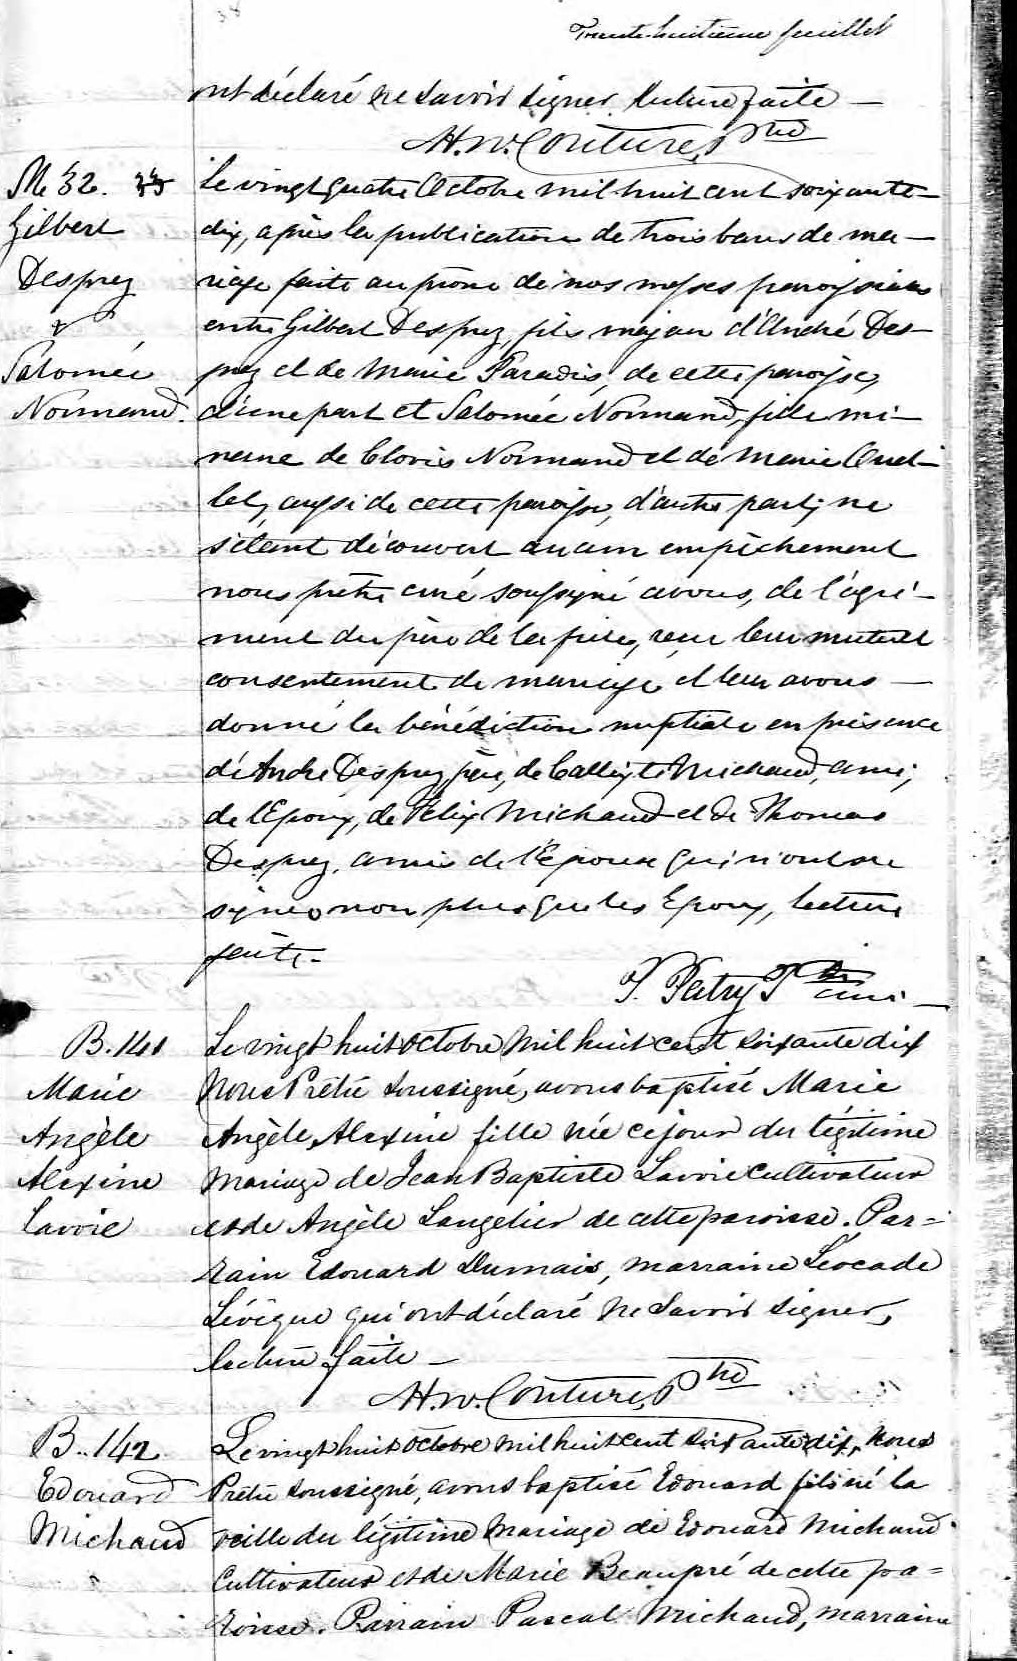 Trente-huitième feuillet
ont déclaré ne savoir signer, lecture faite —
H. W. Couture, Ptre
M. 32.
Gilbert
Desprez
&
Salomée
Normand.
Le vingt quatre Octobre mil huit cent soixante-
dix, après la publication de trois bans de ma-
riage faite au prône de nos messes paroissiales
entre Gilbert Desprez, fils majeur d'André Des-
prez et de Marie Paradis, de cette paroisse,
d'une part et Salomée Normand, fille mi-
neure de Clovis Normand et de Marie Ouel-
let, aussi de cette paroisse, d'autre part; ne
s'étant découvert aucun empêchement
nous prêtre curé soussigné avons, de l'agré-
ment du père de la fille, reçu leur mutuel
consentement de mariage et leur avons —
donné la bénédiction nuptiale en présence
d'André Desprez, père, de Callixte Michaud, ami,
de l'Epoux, de Félix Michaud et de Thomas
Desprez, amis de l'Epouse qui n'ont su
signer non plus que les Epoux, lecture
faite. —
P. Patry Ptre curé —
B. 141
Marie
Angèle
Alexine
Lavoie
Le vingt huit octobre mil huit cent soixante dix
nous Prêtre soussigné, avons baptisé Marie
Angèle, Alexine fille née ce jour du légitime
mariage de Jean Baptiste Lavoie Cultivateur
et de Angèle Langelier de cette paroisse. Par=
rain Edouard Dumais, marraine Léocade
Lévêque qui ont déclaré ne savoir signer,
lecture faite —
H. W. Couture, Ptre
B.. 142
Edouard
Michaud
Le vingt huit octobre mil huit cent soixante dix, nous
Prêtre soussigné, avons baptisé Edouard fils né la
veille du légitime mariage de Edouard Michaud
Cultivateur et de Marie Beaupré de cette pa=
roisse. Parrain Pascal Michaud, marraine